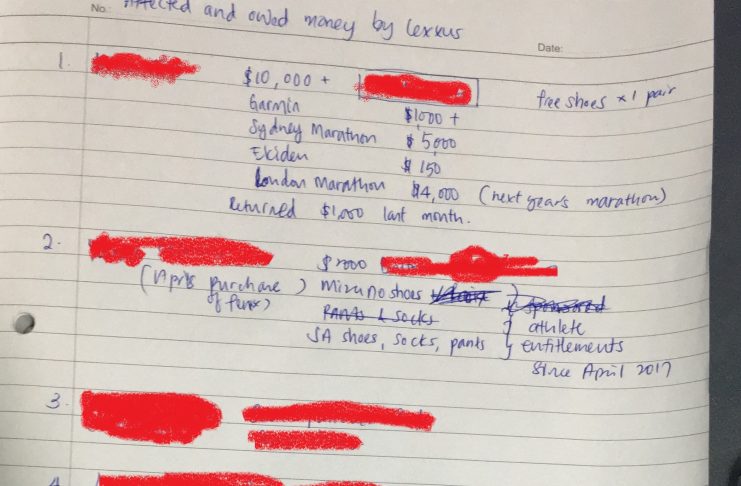 No.
Affected and owed money by lexxus
Date:
1.
$10,000 +
free shoes x 1 pair
Garmin $1000 +
Sydney Marathon $5000
Ekiden $150
London Marathon $4,000 (next years marathon)
Returned $1,000 last month.
2.
(April purchase ) Mizuno shoes
PANTS & SOCKS
athlete
SA shoes, socks, pants entitlements
since April 2017
3.
4